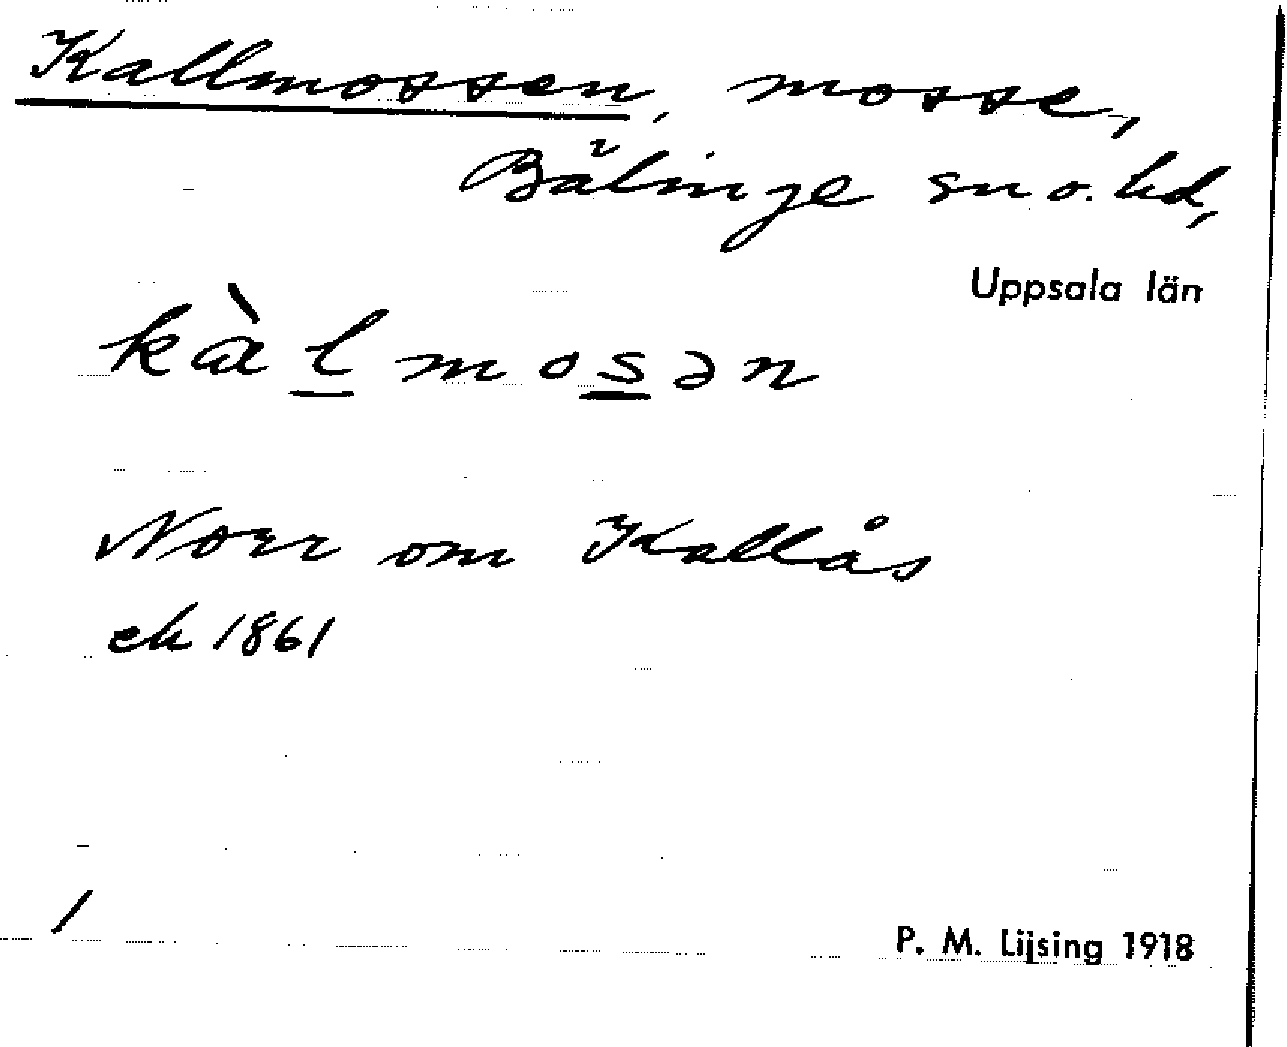 Kallmossen, mosse,
Bälinge sn o. hd,
Uppsala län
kàl̲mos̲ən
Norr om Kallås
ek 1861
/
P. M. Lijsing 1918